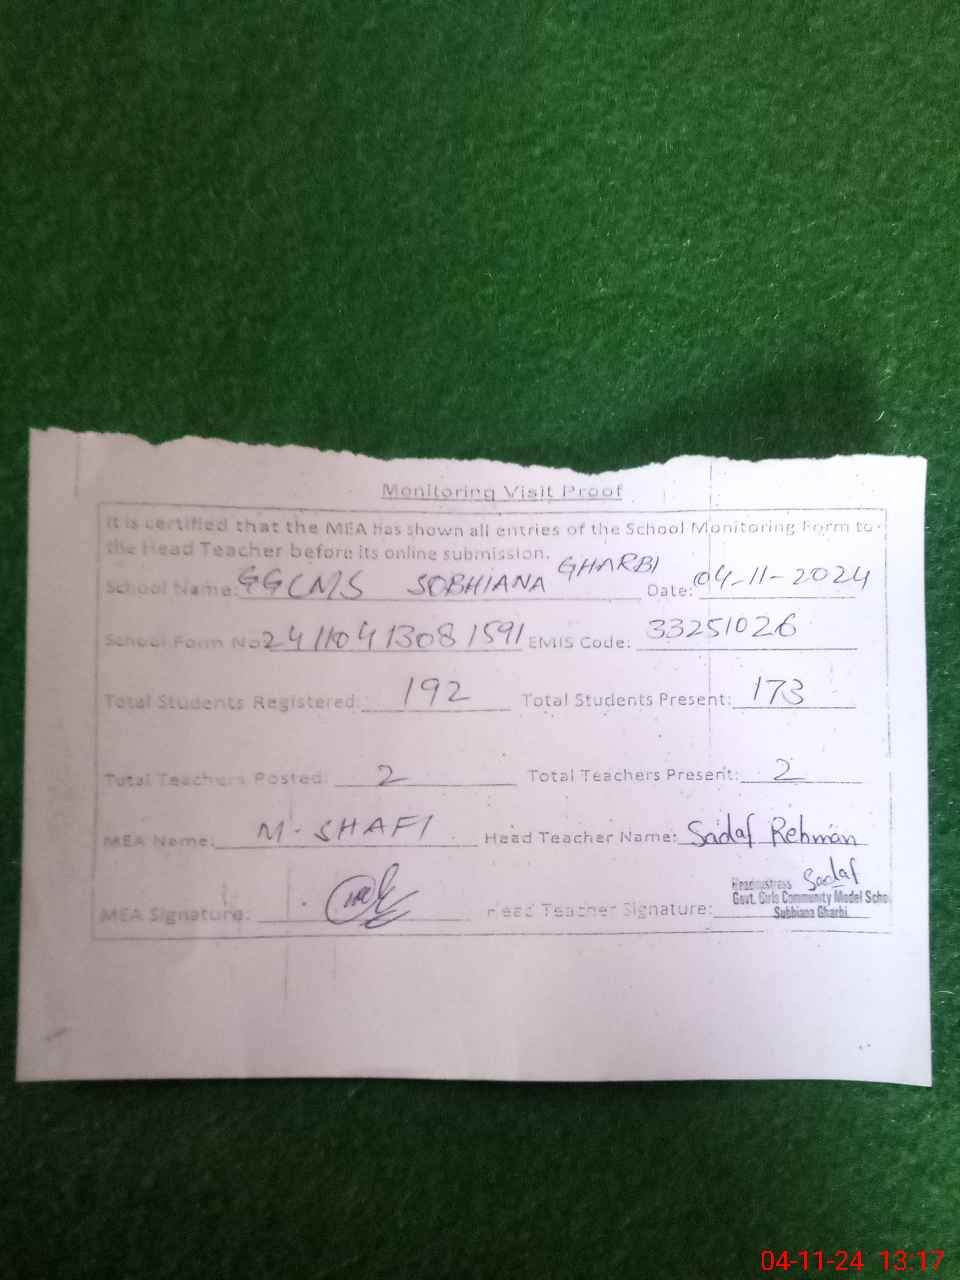 Monitoring Visit Proof
It is certified that the MEA has shown all entries of the School Monitoring Form to
the Head Teacher before its online submission.
School Name: GGCMS SOBHIANA GHARBI Date: 04-11-2024
School Form No 24110413081591 EMIS Code: 33251026
Total Students Registered: 192 Total Students Present: 173
Total Teachers Posted: 2 Total Teachers Present: 2
MEA Name: M. SHAFI Head Teacher Name: Sadaf Rehman
Headmistress Sadaf
Govt. Girls Community Model Scho
MEA Signature: Head Teacher Signature: Subhiana Gharbi
04-11-24 13:17